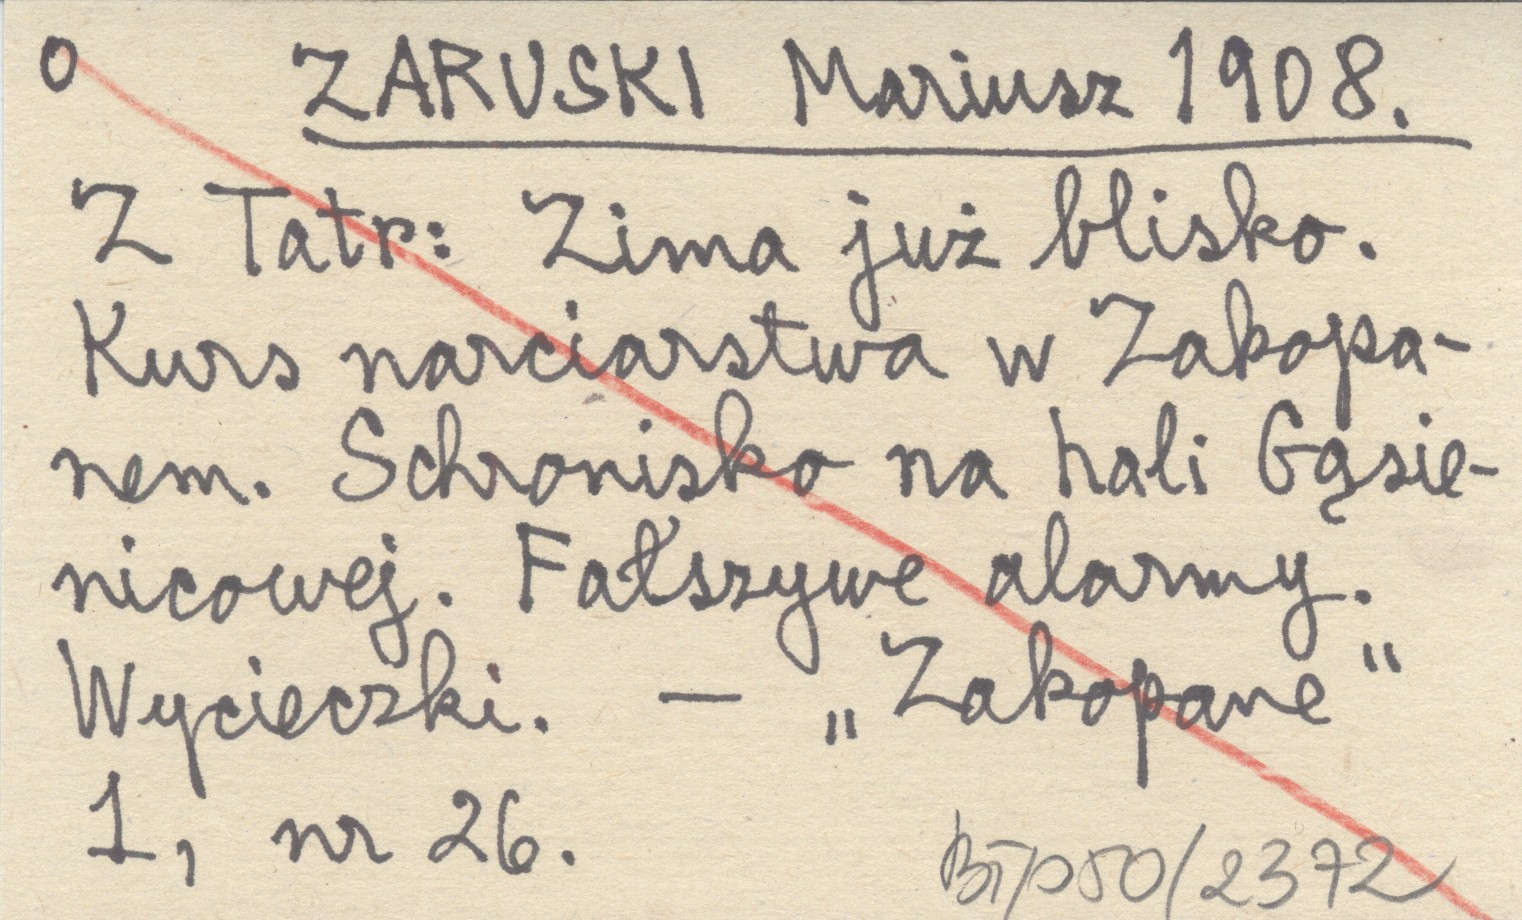 o ZARUSKI Mariusz 1908.
Z Tatr: Zima już blisko.
Kurs narciarstwa w Zakopa-
nem. Schronisko na hali Gąsie-
nicowej. Fałszywe alarmy.
Wycieczki. — „Zakopane"
1, nr 26.
BT/p50/2372